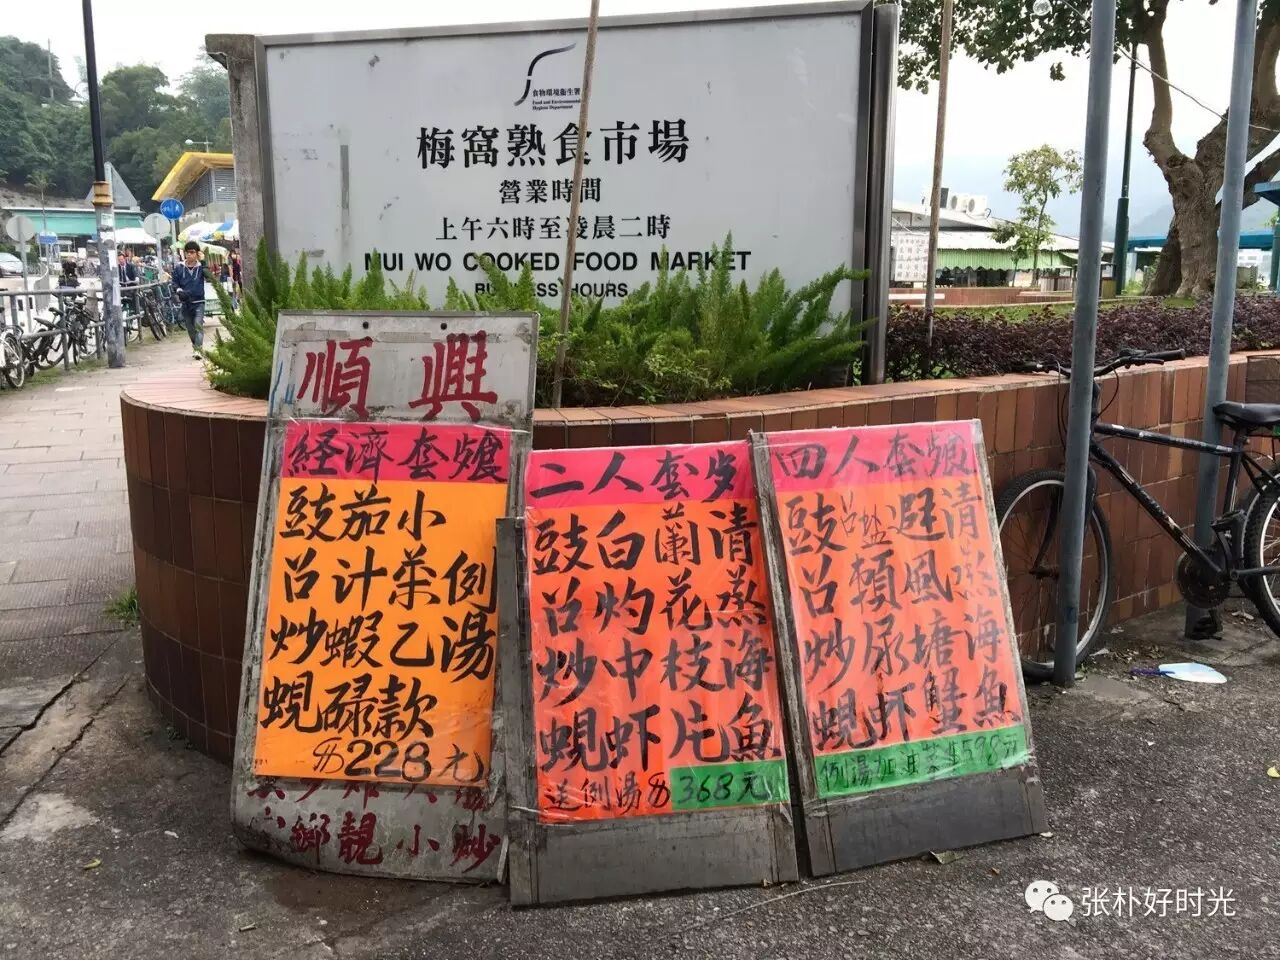 食物環境衞生署
Food and Environmental
Hygiene Department
梅窩熟食市場
營業時間
上午六時至凌晨二時
MUI WO COOKED FOOD MARKET
BUSINESS HOURS
順興
経濟套飱
例湯
小菜乙款
茄汁蝦碌
豉召炒蜆
$228元
鄉靚小炒
二人套
清蒸海魚
蘭花枝片
白灼中虾
豉召炒蜆
送例湯$368元
四人套飱
清蒸海魚
避風塘蟹
召盐瀬尿虾
豉召炒蜆
例湯加油菜$598元
张朴好时光